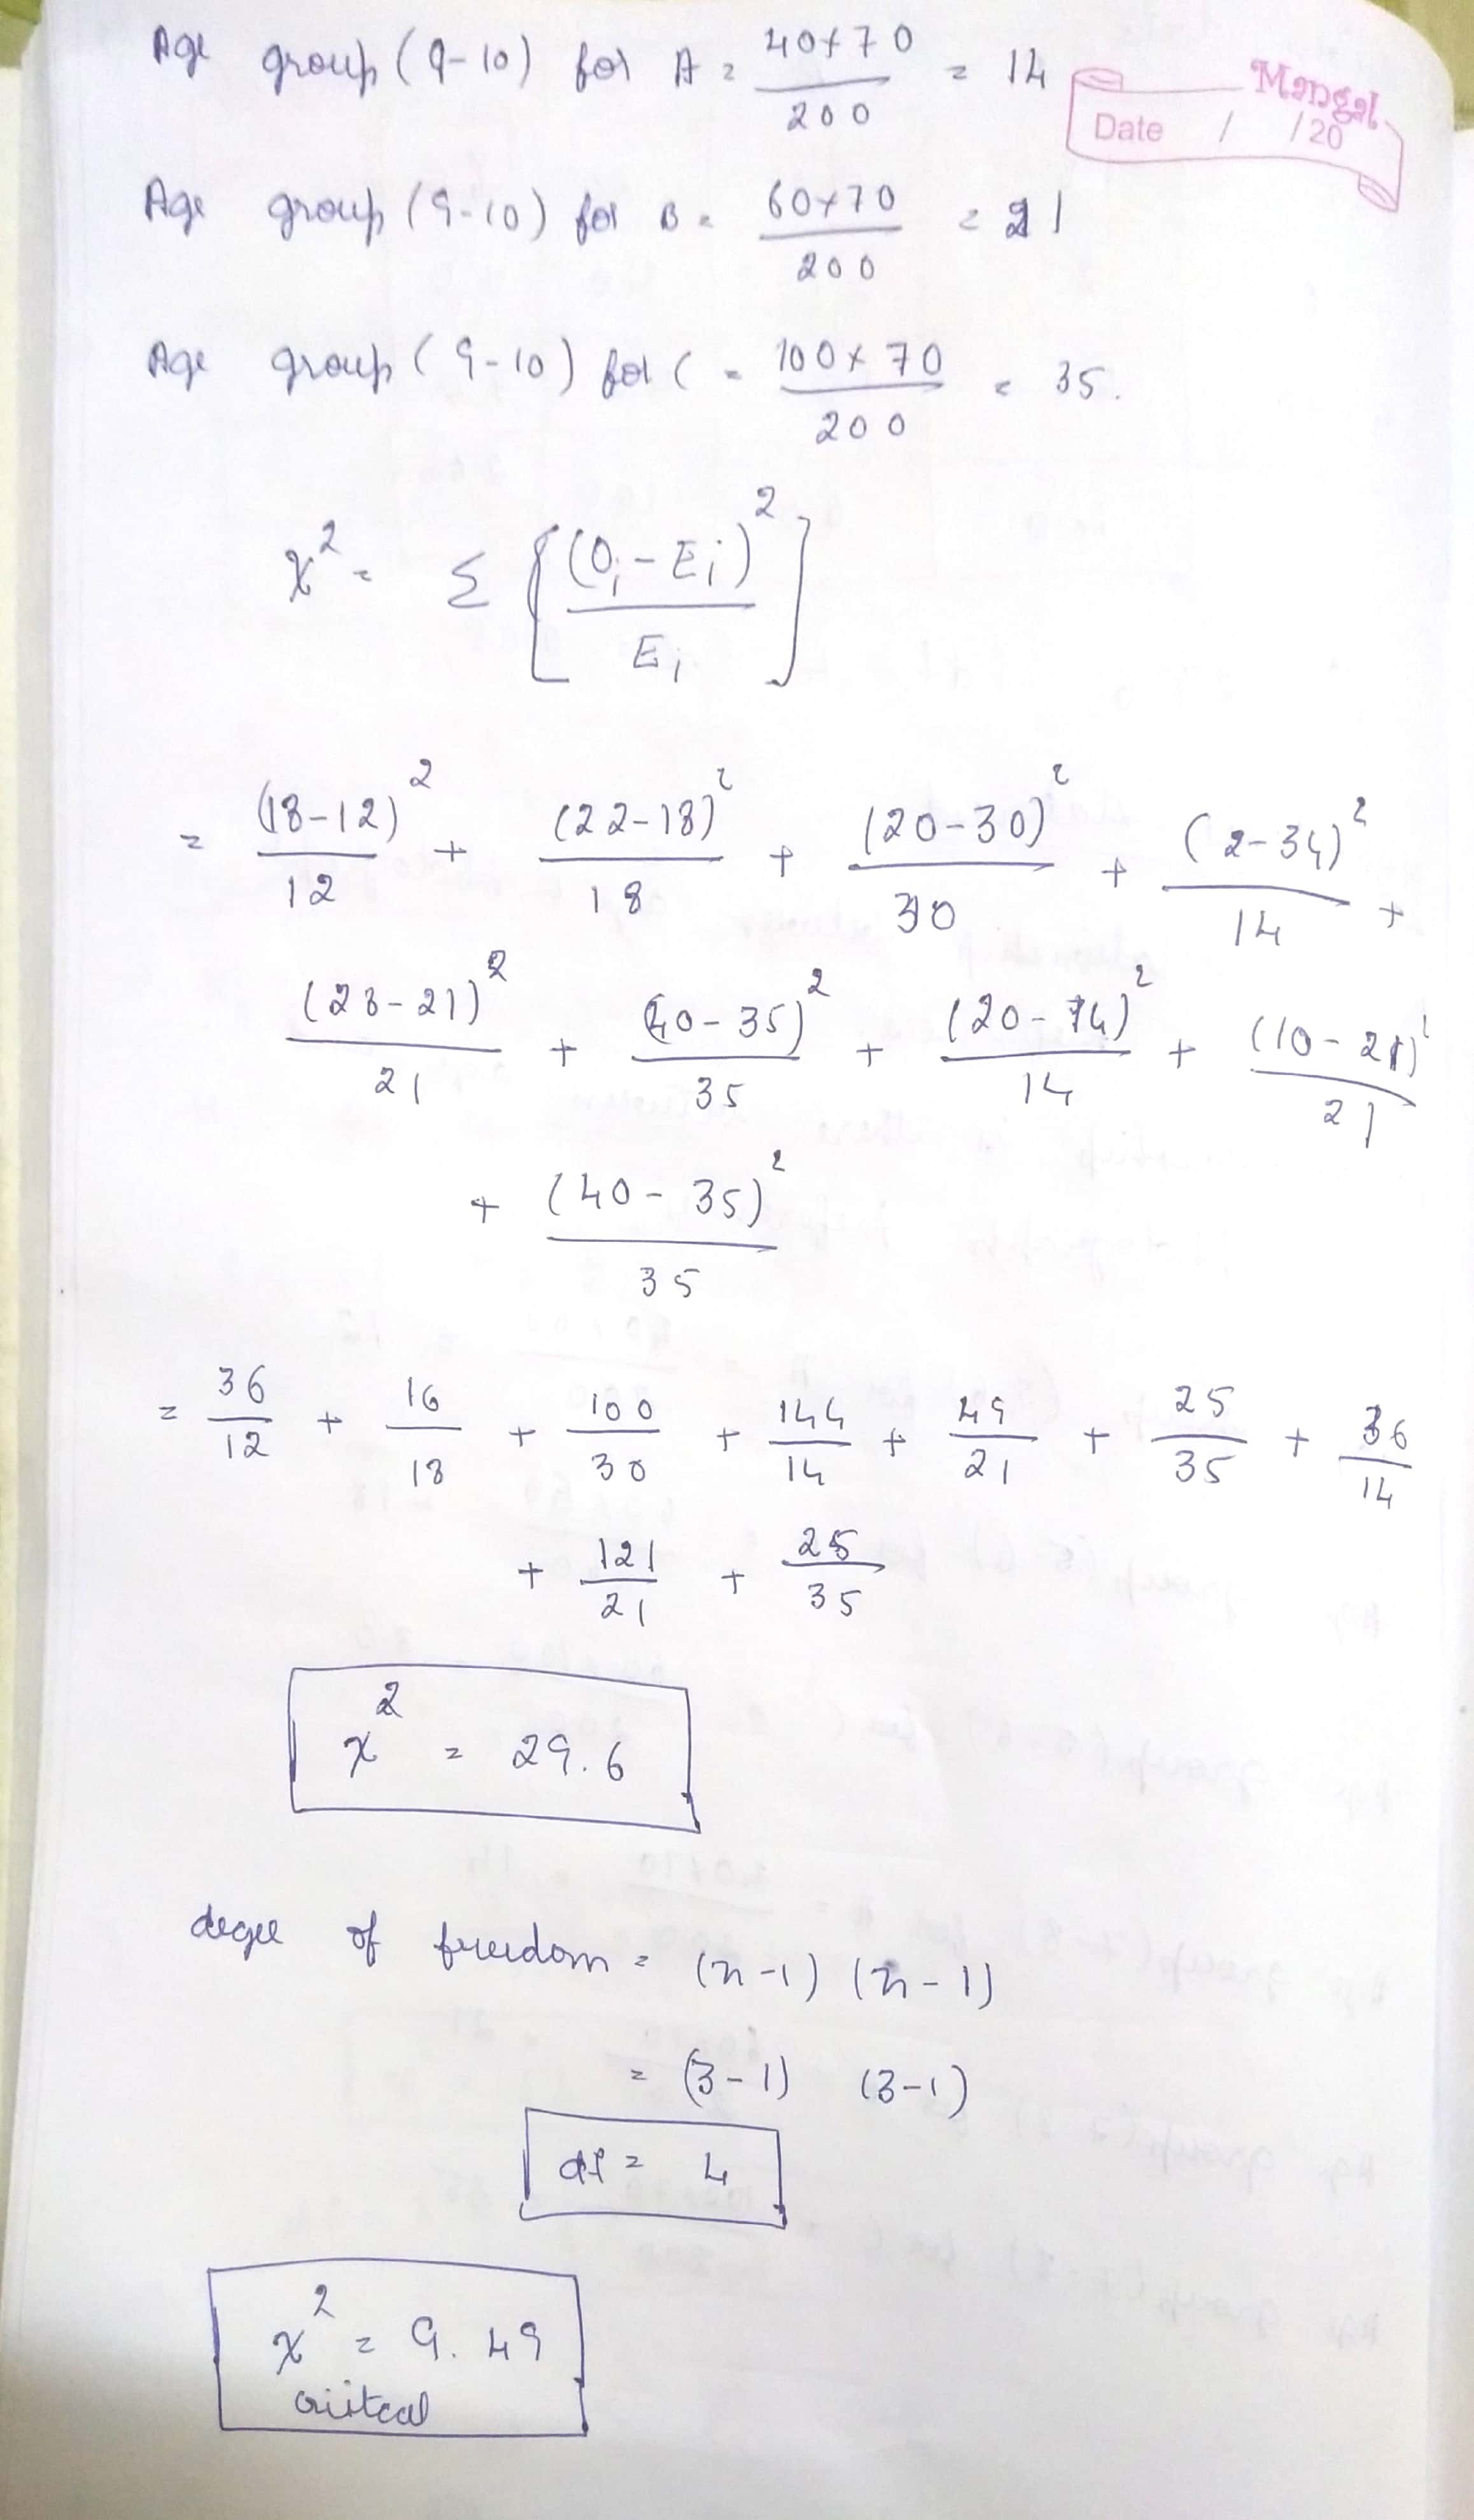 Age group (9-10) for A = 40×70 / 200 = 14
Mangal
Date / /20
Age group (9-10) for B = 60×70 / 200 = 21
Age group (9-10) for C = 100×70 / 200 = 35.
χ² = Σ [(Oi - Ei)² / Ei]
= (18-12)² / 12 + (22-18)² / 18 + (20-30)² / 30 + (2-34)² / 14 +
(28-21)² / 21 + (40-35)² / 35 + (20-14)² / 14 + (10-21)² / 21
+ (40-35)² / 35
= 36/12 + 16/18 + 100/30 + 144/14 + 49/21 + 25/35 + 36/14
+ 121/21 + 25/35
χ² = 29.6
degee of freedom = (n-1) (n-1)
= (3-1) (3-1)
df = 4
χ² = 9.49
critcal